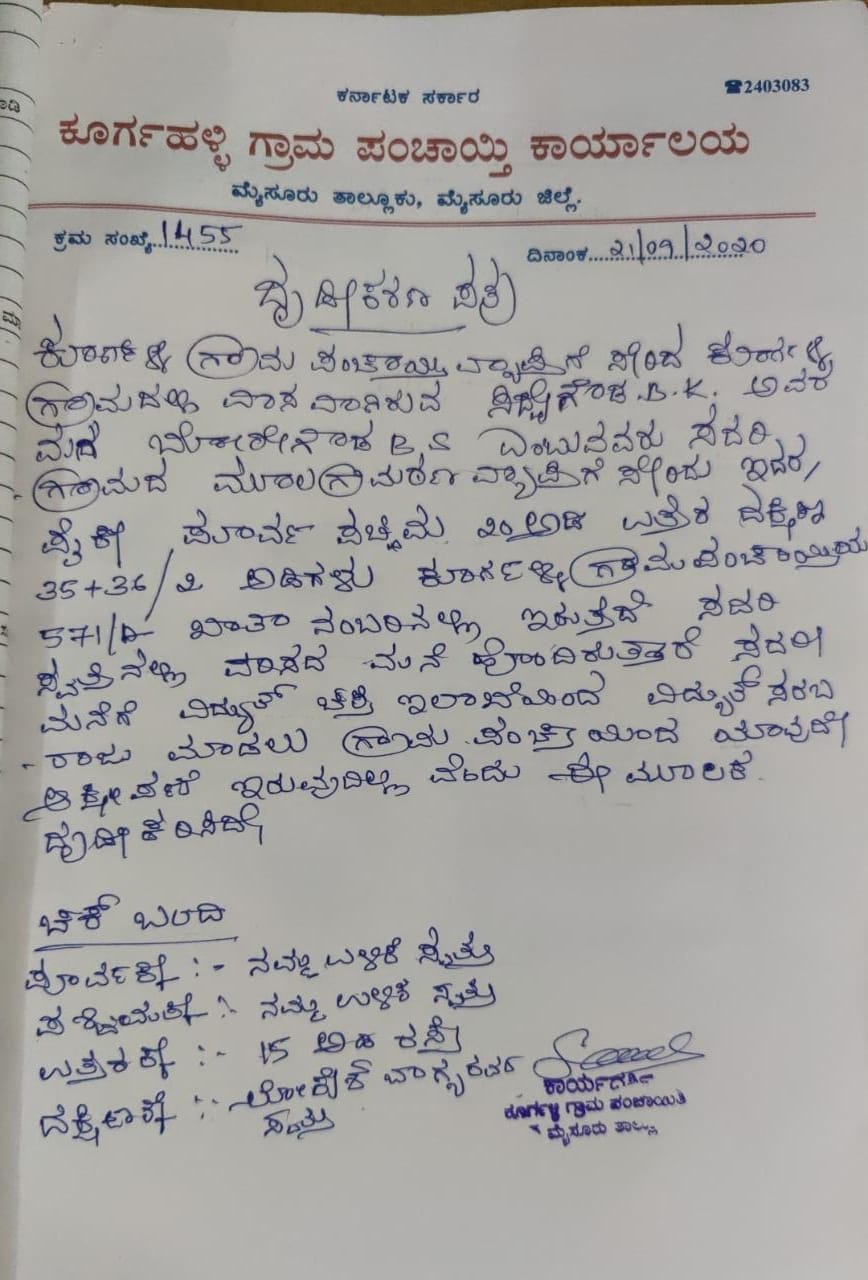 ಕರ್ನಾಟಕ ಸರ್ಕಾರ
☎2403083
ಕೂರ್ಗಹಳ್ಳಿ ಗ್ರಾಮ ಪಂಚಾಯ್ತಿ ಕಾರ್ಯಾಲಯ
ಮೈಸೂರು ತಾಲ್ಲೂಕು, ಮೈಸೂರು ಜಿಲ್ಲೆ.
ಕ್ರಮ ಸಂಖ್ಯೆ 1455
ದಿನಾಂಕ 21/09/2020
ದೃಢೀಕರಣ ಪತ್ರ
ಕೂರ್ಗಳ್ಳಿ ಗ್ರಾಮ ಪಂಚಾಯ್ತಿ ವ್ಯಾಪ್ತಿಗೆ ಸೇರಿದ ಕೂರ್ಗಳ್ಳಿ
ಗ್ರಾಮದಲ್ಲಿ ವಾಸವಾಗಿರುವ B.K. ಅವರ
ಮಗ B.S ಎಂಬುವವರು ಸದರಿ
ಗ್ರಾಮದ ಮೂಲ ಗ್ರಾಮಠಾಣ ವ್ಯಾಪ್ತಿಗೆ ಸೇರಿದ್ದು ಇದರ
ಪೈಕಿ ಪೂರ್ವ ಪಶ್ಚಿಮ 20 ಅಡಿ ಉತ್ತರ ದಕ್ಷಿಣ
35+36/2 ಅಡಿಗಳು ಕೂರ್ಗಳ್ಳಿ ಗ್ರಾಮ ಪಂಚಾಯ್ತಿಯ
ಖಾತಾ ನಂಬರಿನಲ್ಲಿ ಇರುತ್ತದೆ ಸದರಿ
ಸ್ವತ್ತಿನಲ್ಲಿ ವಾಸದ ಮನೆ ಹೊಂದಿರುತ್ತಾರೆ ಸದರಿ
ಮನೆಗೆ ವಿದ್ಯುತ್ ಶಕ್ತಿ ಇಲಾಖೆಯಿಂದ ವಿದ್ಯುತ್ ಸರಬ
ರಾಜು ಮಾಡಲು ಗ್ರಾಮ ಪಂಚಾಯಿಂದ ಯಾವುದೇ
ಆಕ್ಷೇಪಣೆ ಇರುವುದಿಲ್ಲ ವೆಂದು ಈ ಮೂಲಕ
ದೃಢೀಕರಿಸಿದೆ
ಚಕ್ ಬಂದಿ
ಪೂರ್ವಕ್ಕೆ :- ನಮ್ಮ ಉಳಿಕೆ ಸ್ವತ್ತು
ಪಶ್ಚಿಮಕ್ಕೆ :- ನಮ್ಮ ಉಳಿಕೆ ಸ್ವತ್ತು
ಉತ್ತರಕ್ಕೆ :- 15 ಅಡಿ ರಸ್ತೆ
ದಕ್ಷಿಣಕ್ಕೆ :-
ಸ್ವತ್ತು
ಕಾರ್ಯದರ್ಶಿ
ಕೂರ್ಗಳ್ಳಿ ಗ್ರಾಮ ಪಂಚಾಯಿತಿ
ಮೈಸೂರು ತಾಲ್ಲೂಕು